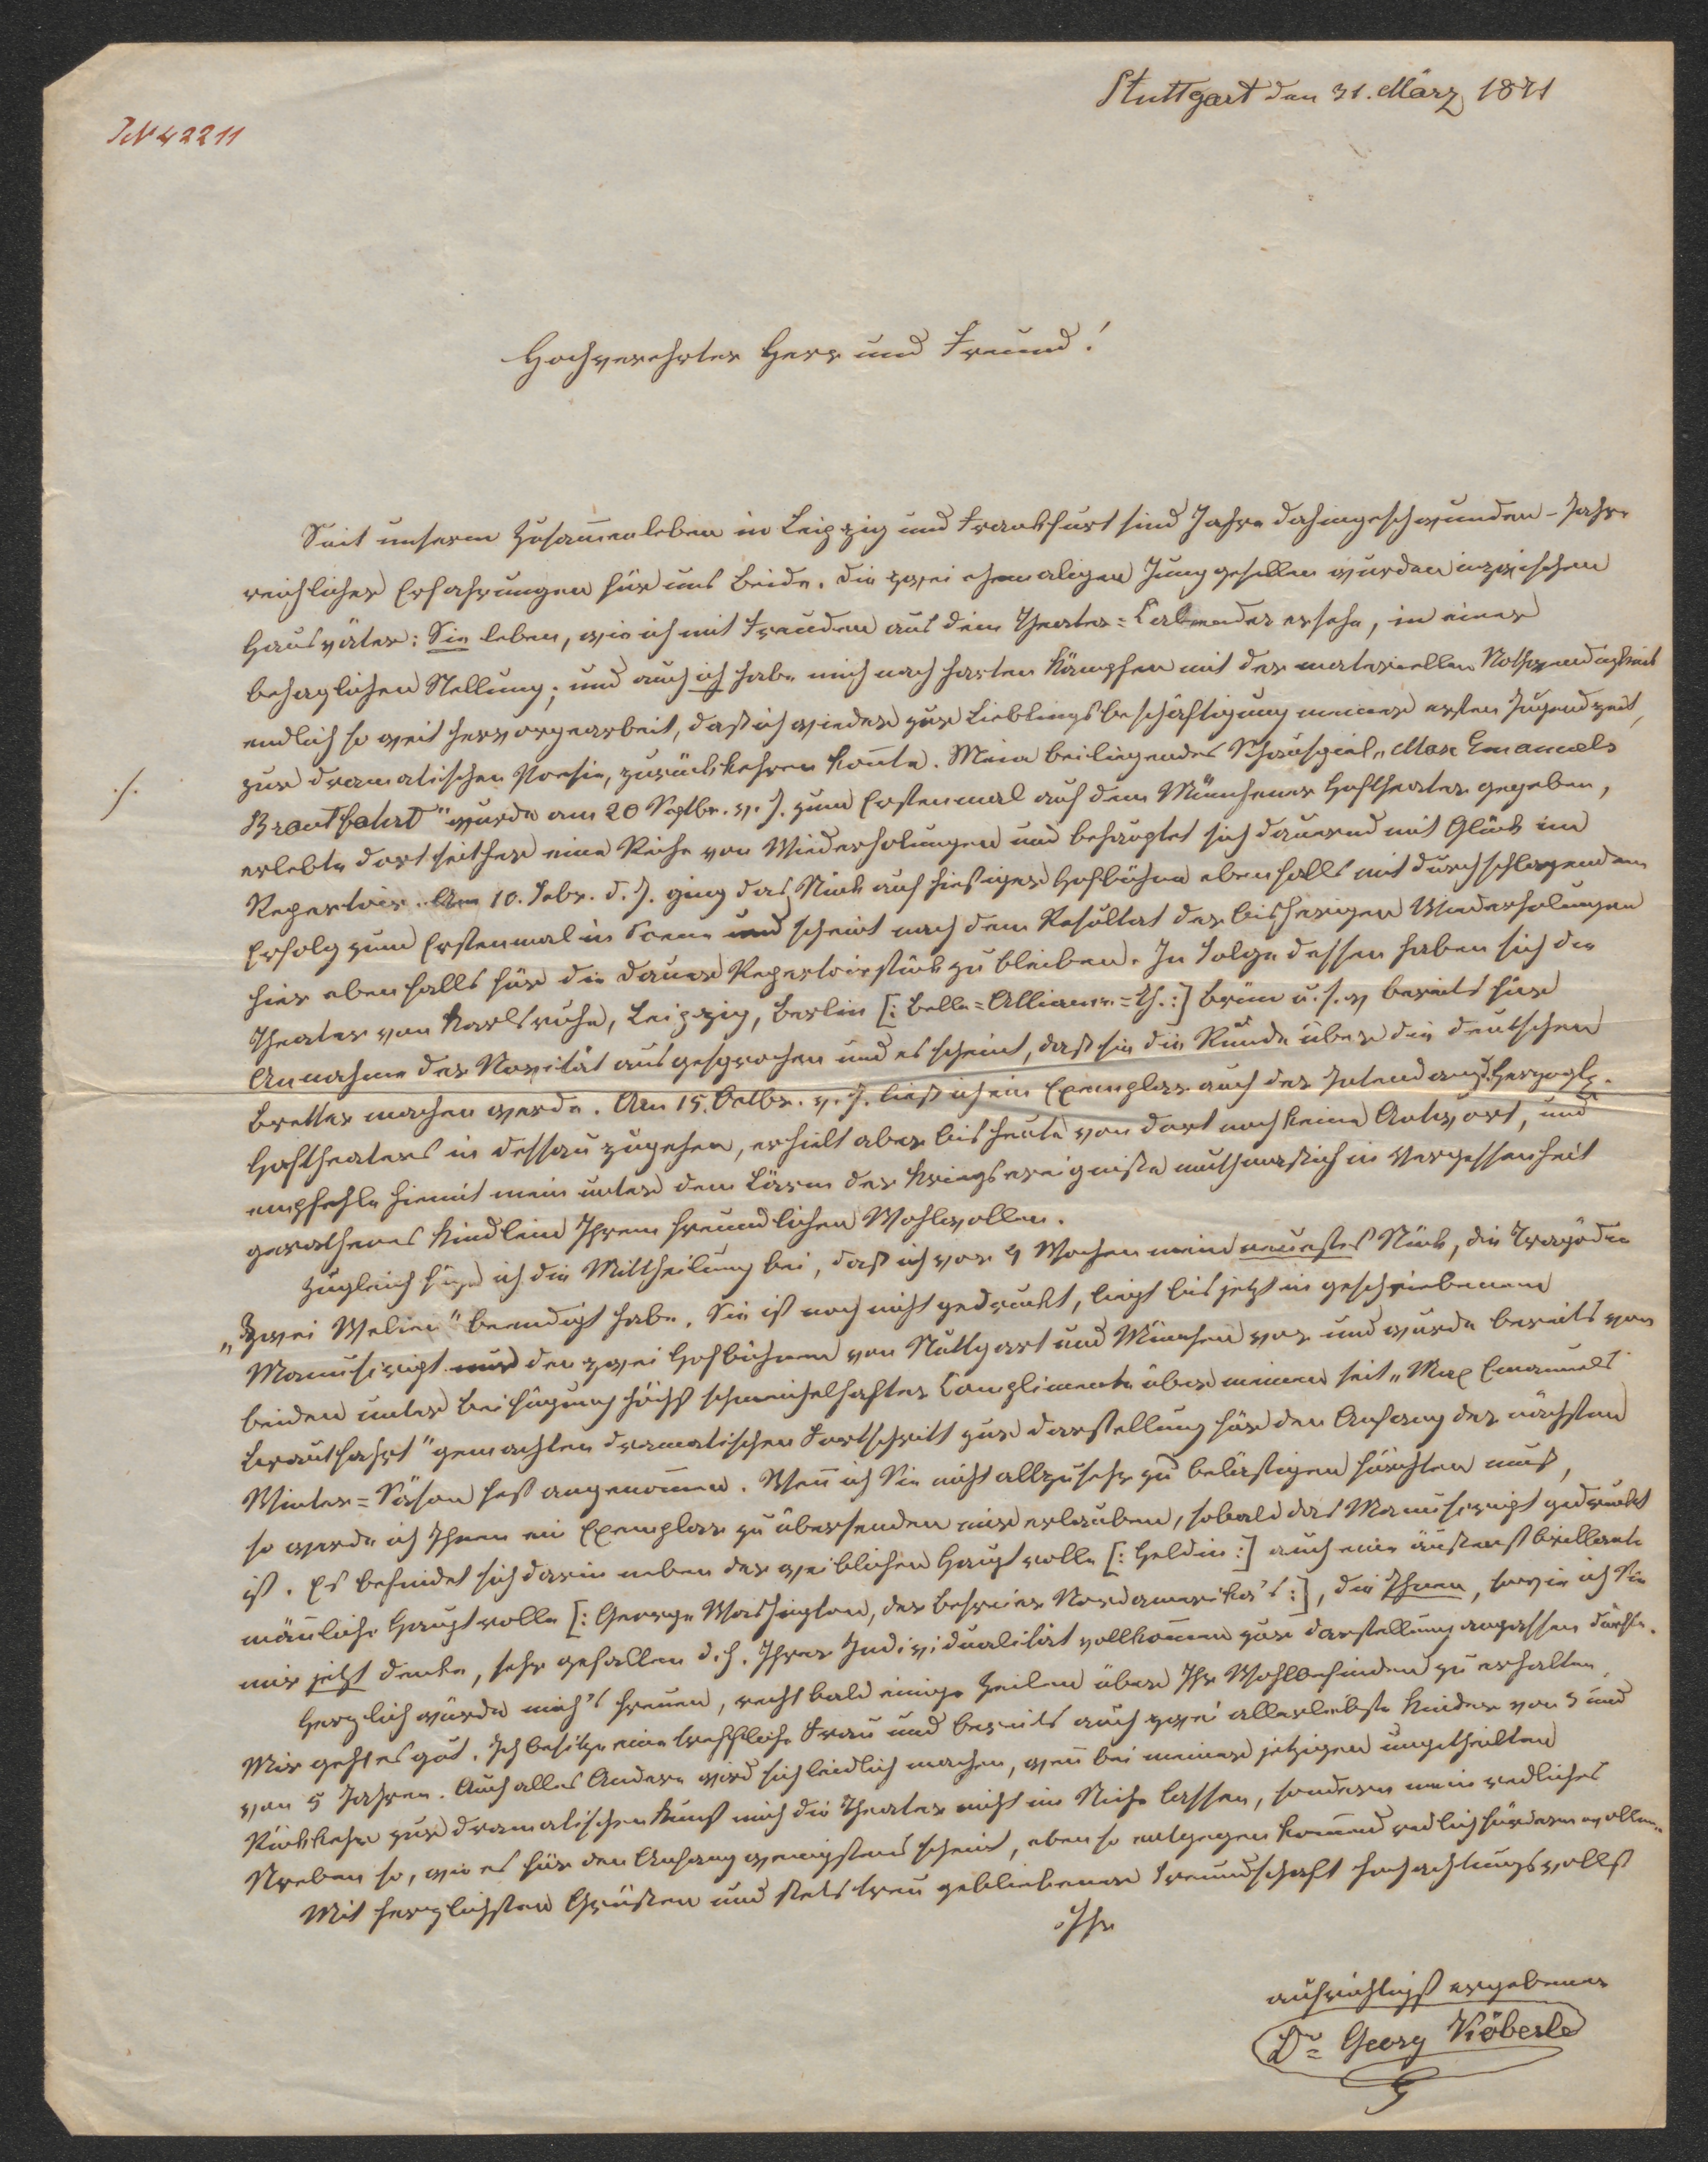 Stuttgart den 31. März 1871
IN 42211
Hochverehrter Herr und Freund!
Seit unserm Zusam̅enleben in Leipzig und Frankfurt sind Jahre dahingeschwunden – Jahre
reichlicher Erfahrungen für uns Beide. Die zwei ehemaligen Junggesellen wurden inzwischen
Hausväter: Sie leben, wie ich mit Freuden aus dem Theater=Kalender ersehe, in einer
behaglichen Stellung; und auch ich habe mich nach harten Kämpfen mit der materiellen Nothwendigkeit
endlich so weit hervorgearbeit, daß ich wieder zur Lieblingsbeschäftigung meiner ersten Jugendzeit,
zur dramatischen Poesie, zurückkehren kon̅te. Mein beiliegendes Schauspiel „Max Emanuels
./.
Brautfahrt" wurde am 20 Septbr. v. J. zum Erstenmal auf dem Münchener Hoftheater gegeben,
erlebte dort seither eine Reihe von Wiederholungen und behauptet sich dauernd mit Glück im
Repertoir. Am 10. Febr. d. J. ging das Stück auf hiesiger Hofbühne ebenfalls mit durchschlagendem
Erfolg zum Erstenmal in Scene und scheint nach dem Resultat der bisherigen Wiederholungen
hier ebenfalls für die Dauer Repertoirstück zu bleiben. In Folge dessen haben sich die
Theater von Karlsruhe, Leipzig, Berlin [: Belle=Alliance=Th. :] Brün̅ u. s. w bereits für
Annahme der Novität ausgesprochen und es scheint, daß sie die Runde über die deutschen
Bretter machen werde. Am 15. Octbr. v. J. ließ ich ein Exemplar auch der Intendanz d. Herzogl.
Hoftheaters in Dessau zugehen, erhielt aber bis heute von dort noch keine Antwort, und
empfehle hiemit mein unter dem Lärm der Kriegsereigniße muthmaßlich in Vergessenheit
gerathenes Kindlein Ihrem freundlichen Wohlwollen.
Zugleich füge ich die Mittheilung bei, daß ich vor 4 Wochen mein neuestes Stück, die Tragödie
„Zwei Welten" beendigt habe. Sie ist noch nicht gedruckt, liegt bis jetzt in geschriebenem
Manuscript nur den zwei Hofbühnen von Stuttgart und München vor und wurde bereits von
beiden unter Beifügung höchst schmeichelhafter Complimente über meinen seit „Max Emanuels
Brautfahrt" gemachten dramatischen Fortschritt zur Darstellung für den Anfang der nächsten
Winter=Säson fest angenom̅en. Wen̅ ich Sie nicht allzusehr zu belästigen fürchten muß,
so werde ich Ihnen ein Exemplar zu übersenden mir erlauben, sobald das Manuscript gedruckt
ist. Es befindet sich darin neben der weiblichen Hauptrolle [: Heldin :] auch eine äußerst brillante
män̅liche Hauptrolle [: George Washington, der Befreier Nordamerika's :], die Ihnen, sowie ich Sie
mir jetzt denke, sehr gefallen d. h. Ihrer Individualität vollkom̅en zur Darstellung anpassen dürfte.
Herzlich würde mich's freuen, recht bald einige Zeilen über Ihr Wohlbefinden zu erhalten.
Mir geht es gut. Ich besitze eine treffliche Frau und bereits auch zwei allerliebste Kinder von 3 und
von 5 Jahren. Auch alles Andere wird sich leidlich machen, wen̅ bei meiner jetzigen ungetheilten
Rückkehr zur dramatischen Kunst mich die Theater nicht im Stiche lassen, sondern mein redliches
Streben so, wie es für den Anfang wenigstens scheint, eben so entgegenkom̅end redlich fördern wollen.
Mit herzlichsten Grüßen und stets treu gebliebener Freundschaft hochachtungsvollst
Ihr
aufrichtigst ergebener
Dr. Georg Köberle